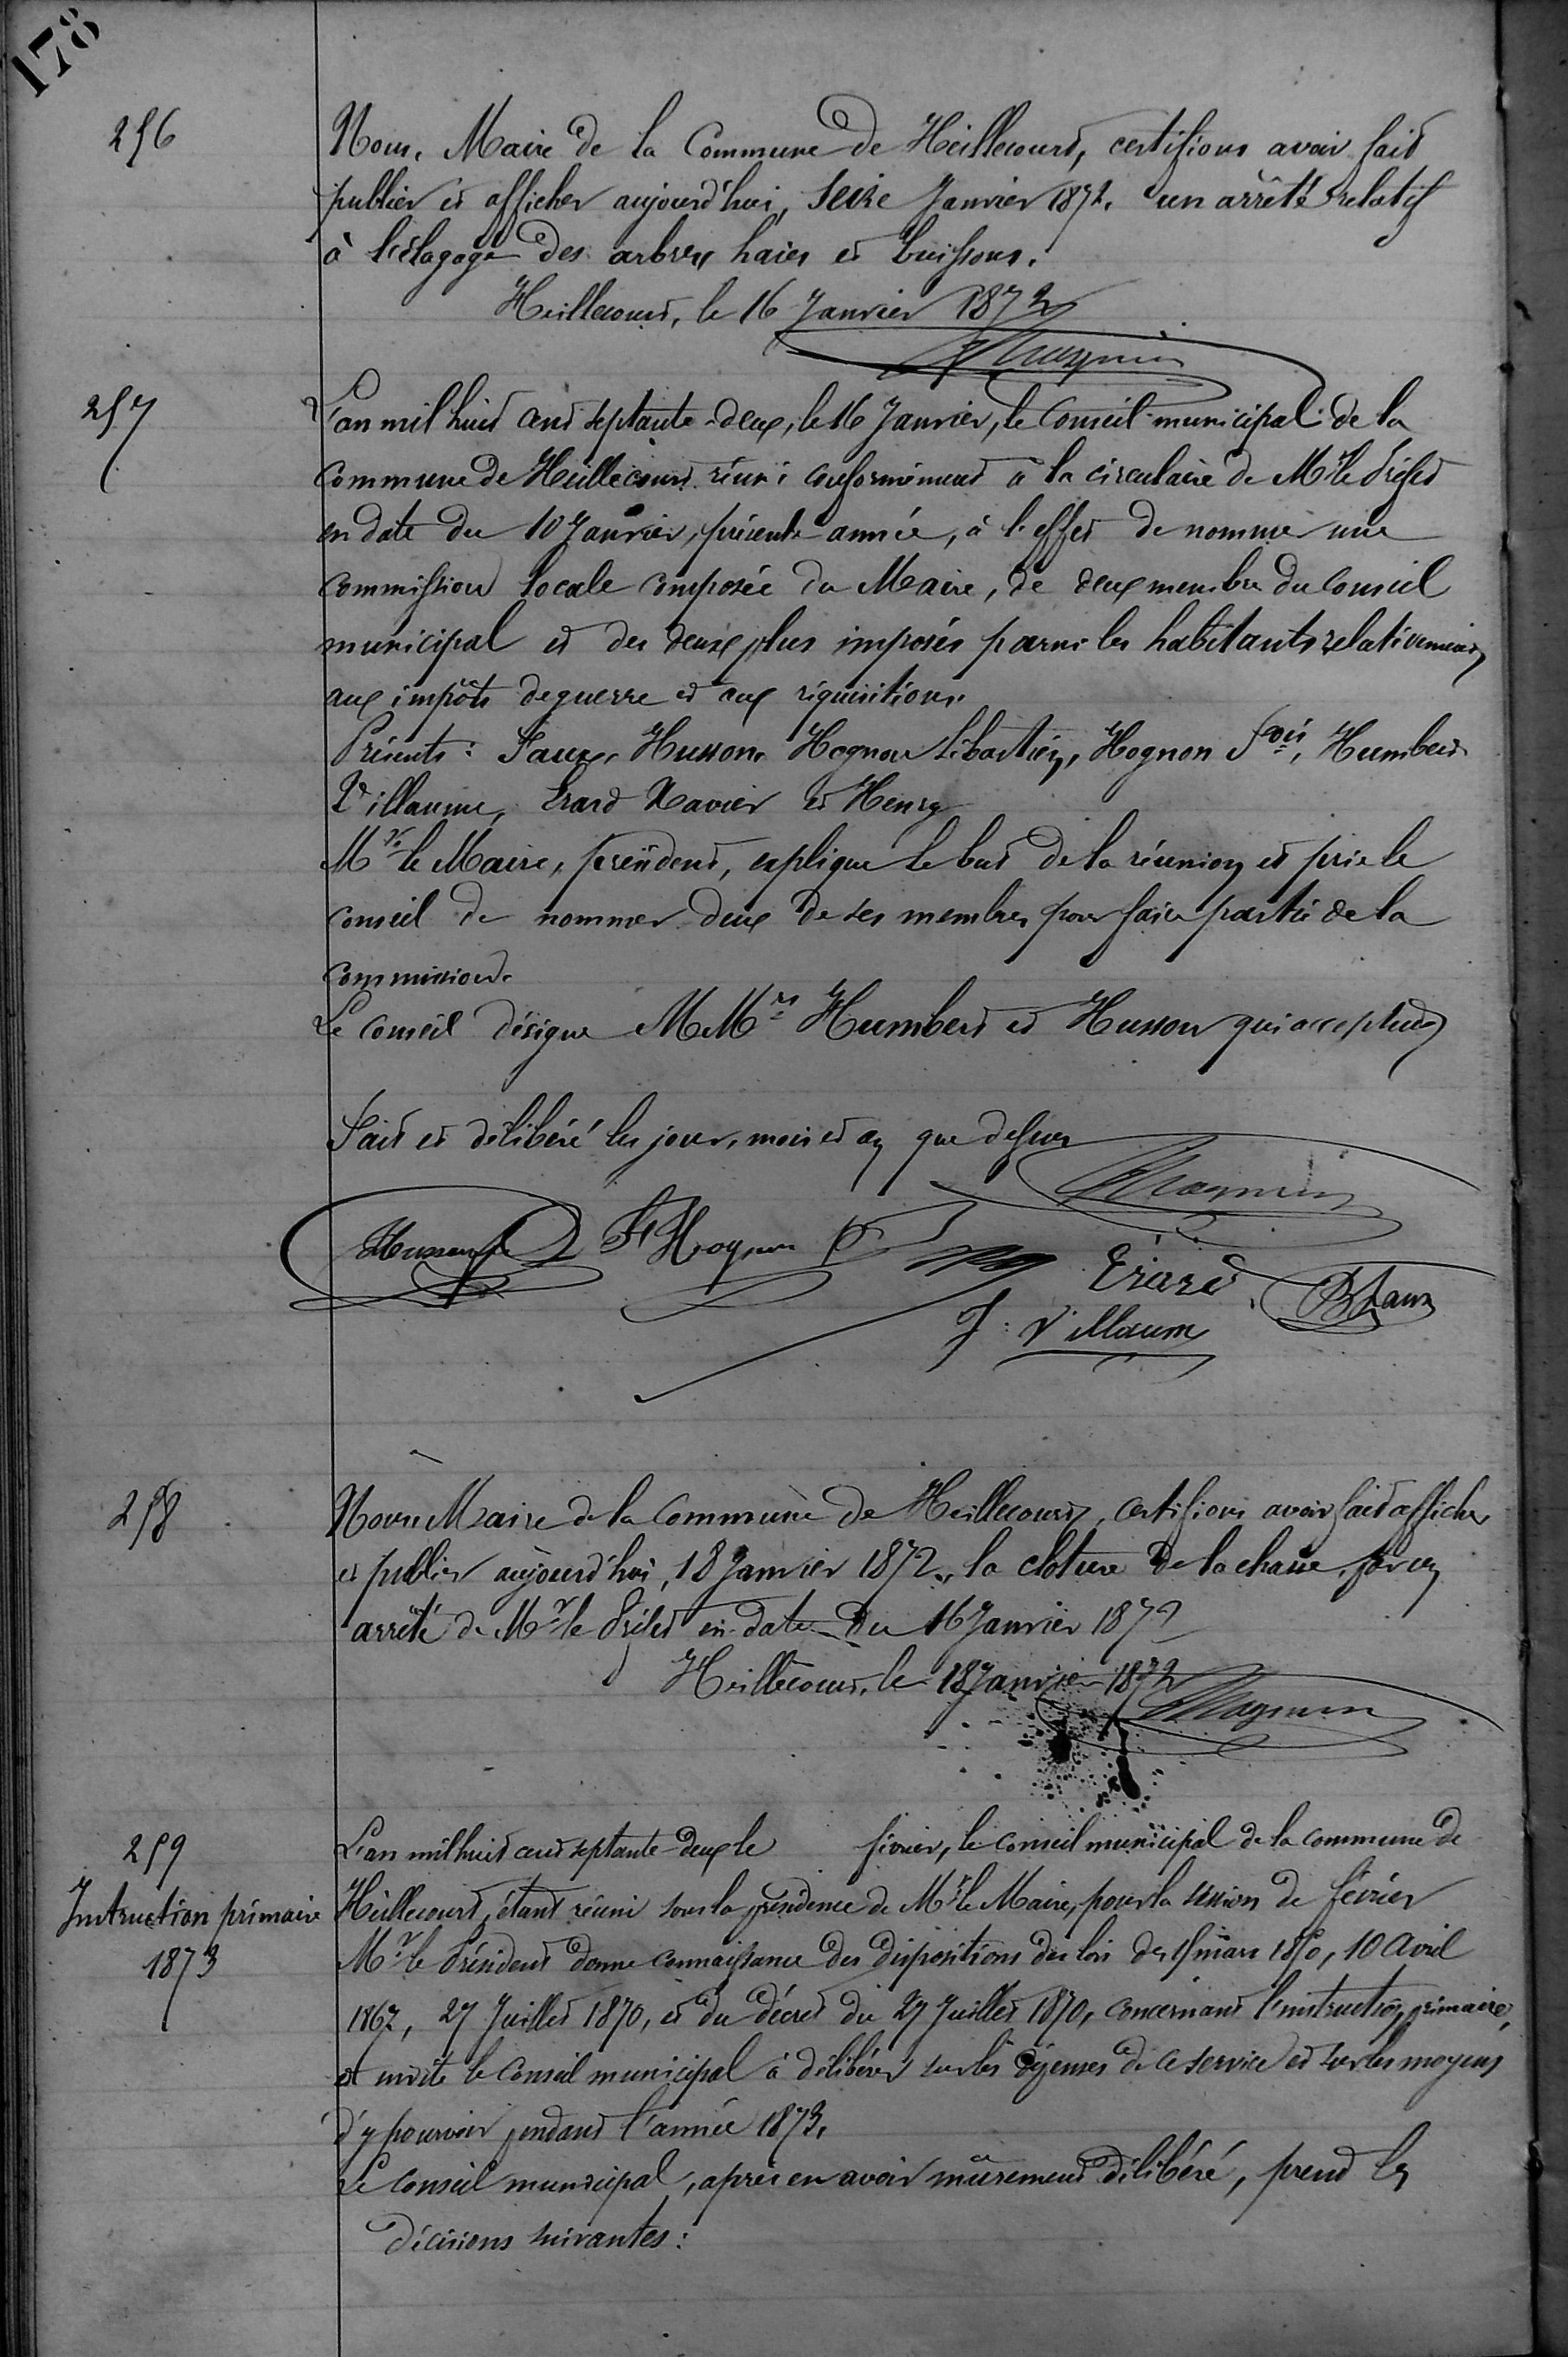 178
256
Nous, Maire de la Commune de Heillecourt, certifions avoir fait
publier et afficher aujourd'hui, seize Janvier 1872, un arrêté relatif
à l'élagage des arbres haies et buissons.
Heillecourt, le 16 Janvier 1872
Magnin
257
L'an mil huit cent septante-deux, le 16 Janvier, le Conseil municipal de la
commune de Heillecourt réuni conformément à la circulaire de Mr le Préfet
en date du 10 Janvier, présente année, à l'effet de nommer une
commission locale composée du Maire, de deux membre du Conseil
municipal et des deux plus imposés parmi les habitants relativement
aux impôts de guerre et aux réquisitions.
Présents: Faux, Husson, Hognon Sébastien, Hognon Fois, Humbert
Villaume, Erard Xavier et Henry
Mr le Maire, président, explique le but de la réunion et prie le
conseil de nommer deux de ses membres pour faire partie de la
commission.
Le conseil désigne MMrs Humbert et Husson qui acceptent
Fait et délibéré les jour, mois et an que dessus
Magnin
Husson F Hognon Erard
J. Villaume Faux
258
Nous Maire de la commune de Heillecourt, certifions avoir fait afficher
et publier aujourd'hui, 18 Janvier 1872, la cloture de la chasse, par un
arrêté de Mr le Préfet en date du 16 Janvier 1872
Heillecourt, le 18 Janvier 1872
Magnin
259
Instruction primaire
1873
L'an mil huit cent septante-deux le février, le conseil municipal de la commune de
Heillecourt, étant réuni sous la présidence de Mr le Maire, pour la session de février
Mr le Président donne connaissance des dispositions des lois des 15 mars 1850, 10 Avril
1867, 27 Juillet 1870, et du décret du 27 Juillet 1870, concernant l'instruction primaire,
et invite le Conseil municipal à délibérer sur les dépenses de ce service et sur les moyens
d'y pourvoir pendant l'année 1873.
Le conseil municipal, après en avoir mûrement délibéré, prend les
décisions suivantes: